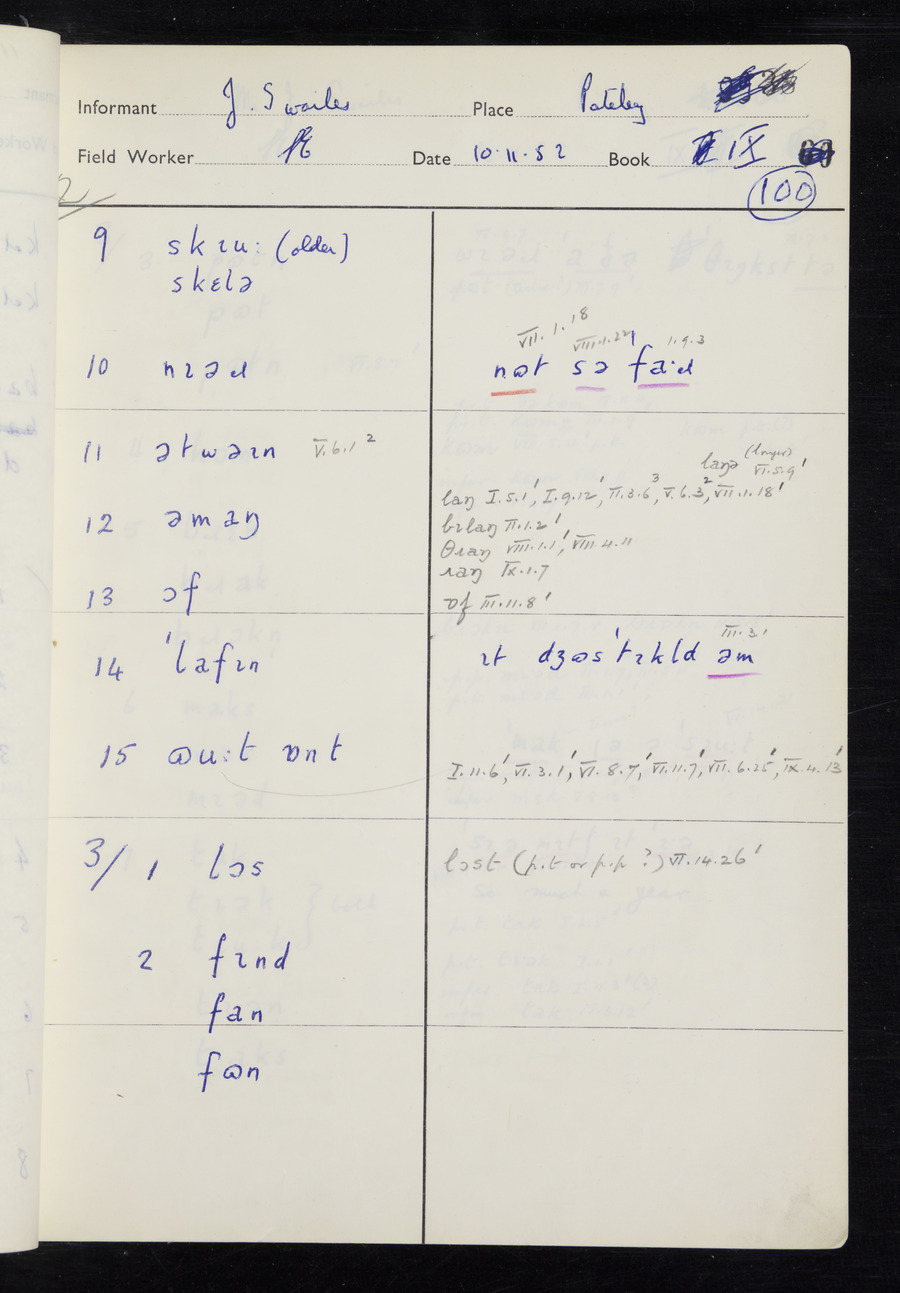 Informant J. Swailes Place Pateley
Field Worker Date 10.11.52 Book IX
100
9 skɪu: (older)
skɛlə
VII.1.18 VIII.1.22 1.9.3
10 nɪəɹ nɷt sə fa:ɹ
11 ətwəɪn V.6.1²
laŋə (longer) VI.5.9'
laŋ I.5.1', I.9.12', II.3.6³, V.6.3², VII.1.18'
12 əmaŋ bɪlaŋ II.1.2'
θɪaŋ VIII.1.1', VIII.4.11
ɹaŋ IX.1.7
13 ɔf ɒf III.11.8'
III.3.1
14 'lafɪn ɪt dʒɷs 'tɪkld əm
15 ɷu:t ɒnt I.11.6', VI.3.1', VI.8.7', VI.11.7', VII.6.25', IX.4.13'
3/ 1 lɔs lɔst (p.t or p.p ?) VI.14.26'
2 fɪnd
fan
fɷn